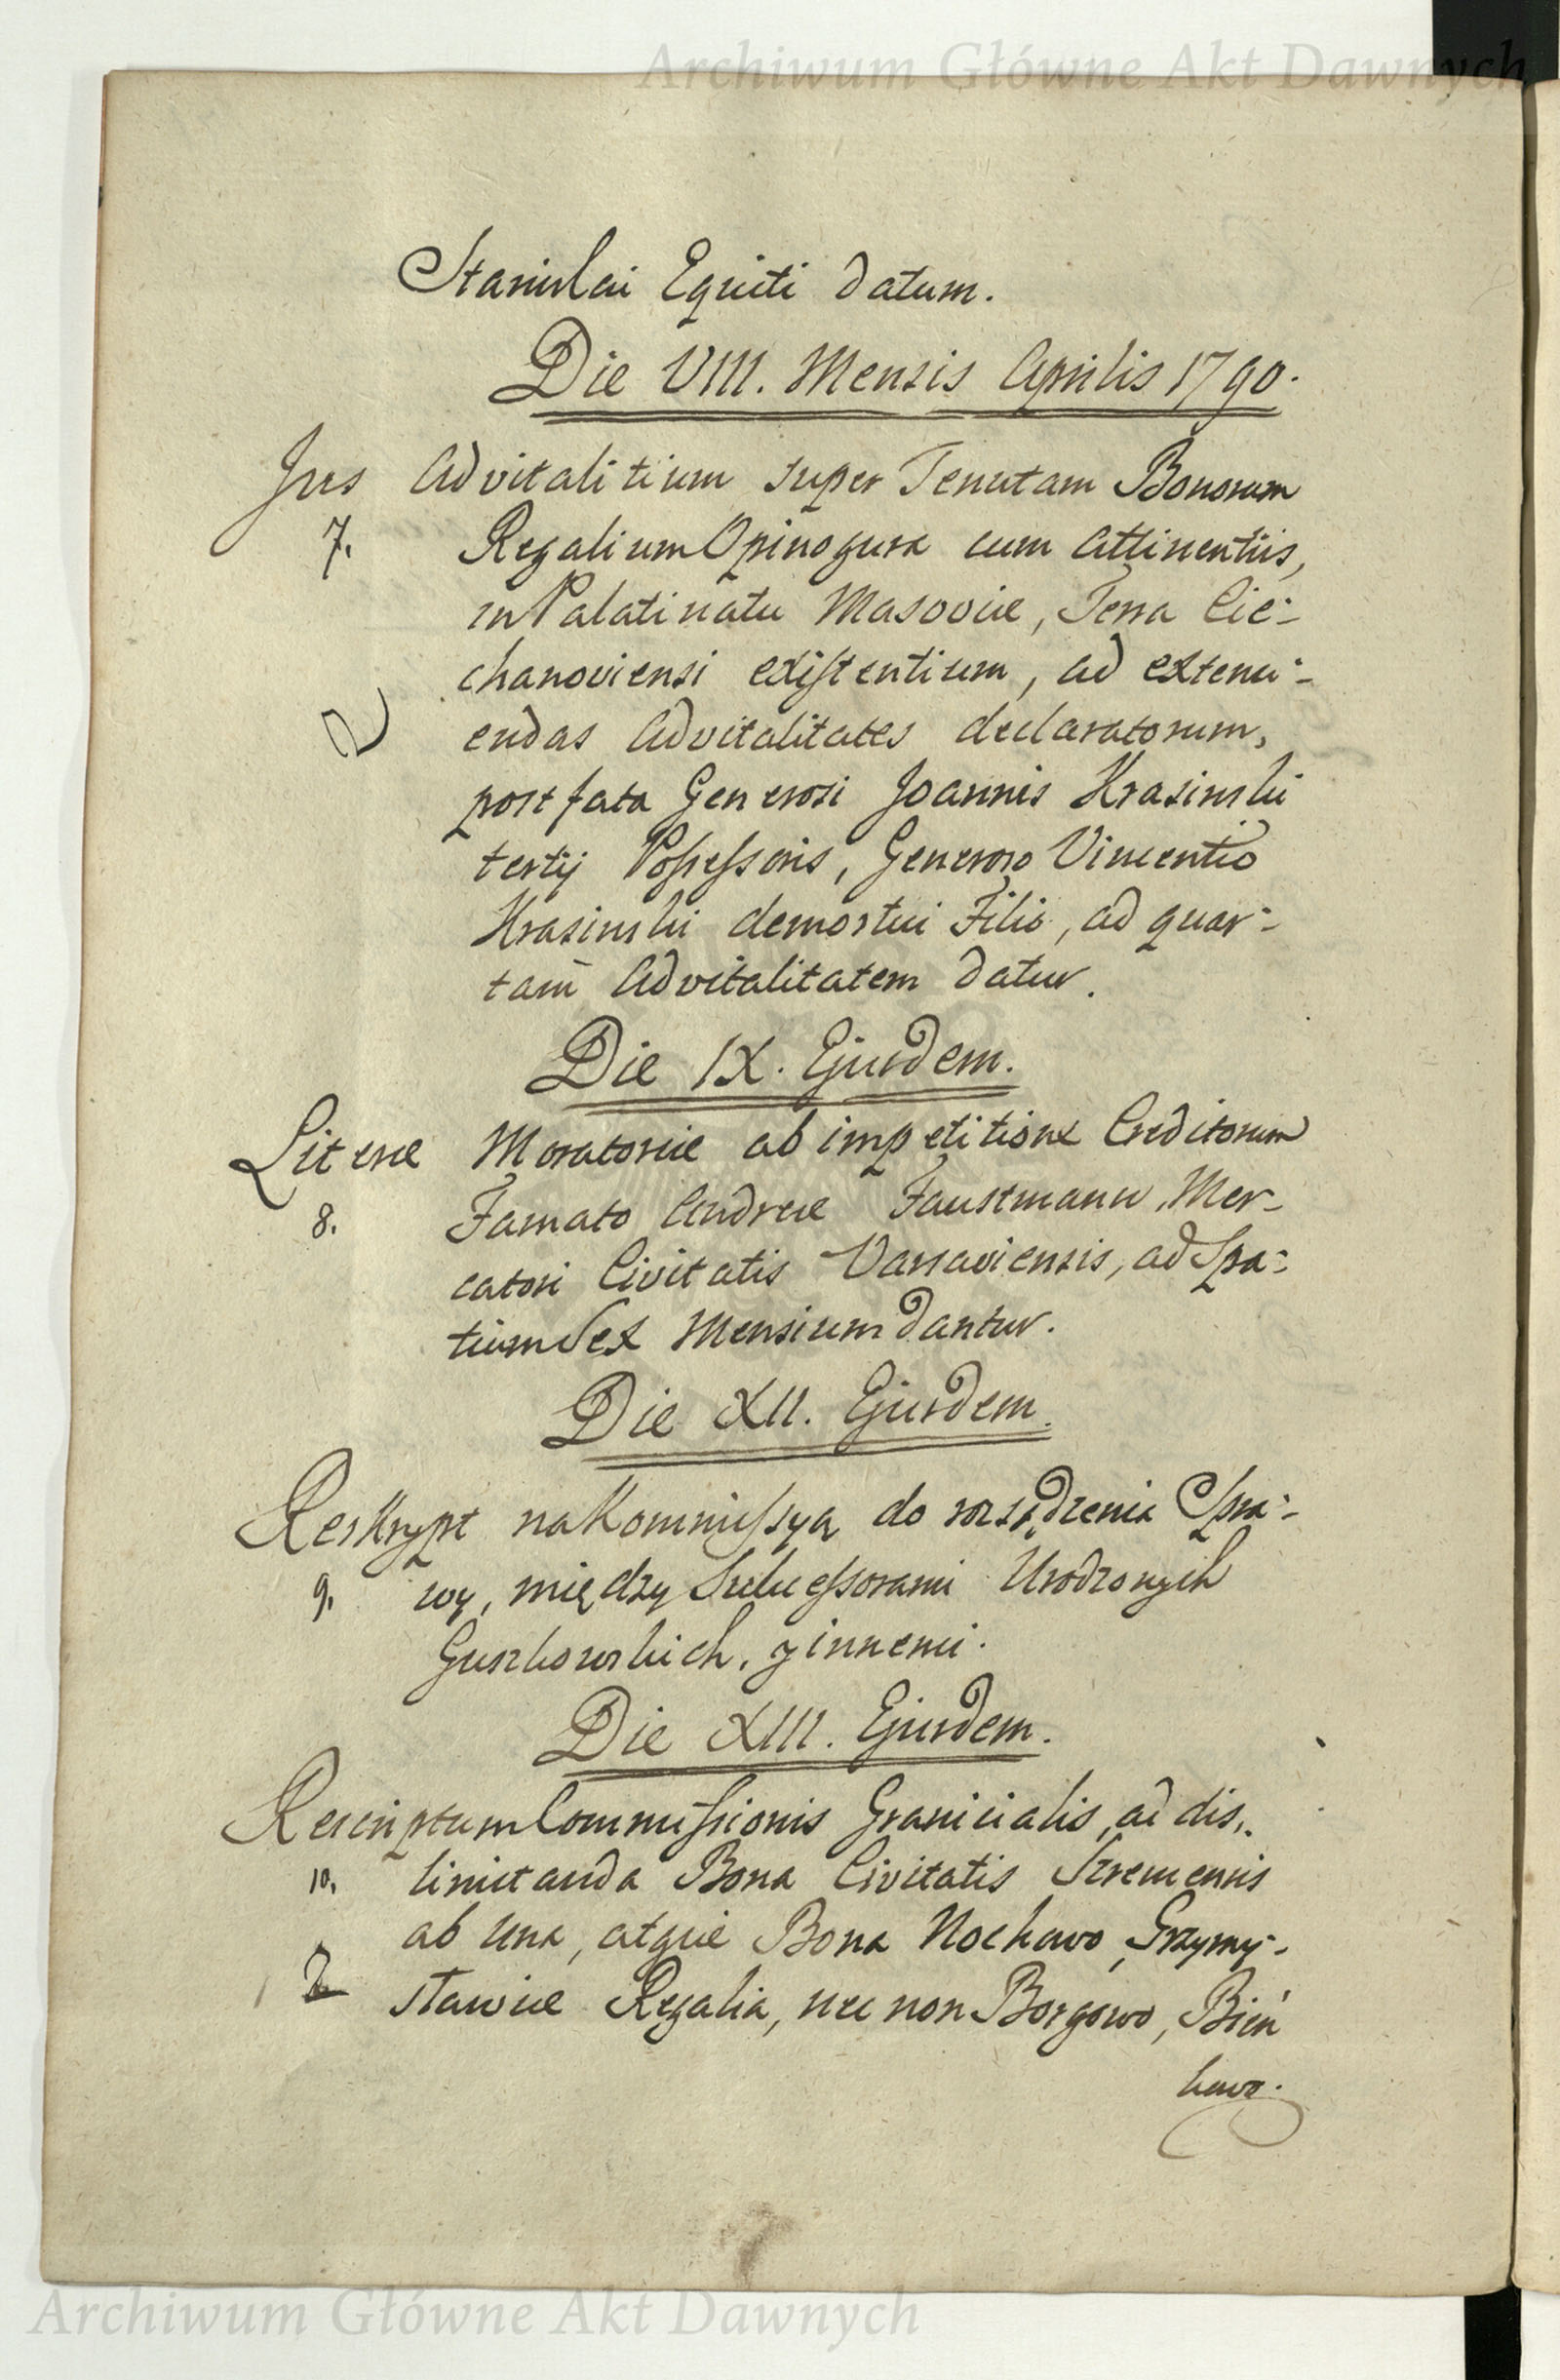 Archiwum Główne Akt Dawnych
Stanislai Equiti datum.
Die VIII. Mensis Aprilis 1790.
Jus Advitalitium super Tenutam Bonorum
7. Regalium Opinogura cum attinentiis,
in Palatinatu Masoviæ, Terra Cie-
chanoviensi existentium, ad extenu-
endas Advitalitates declaratorum,
post fata Generosi Joannis Krasinski
tertij Possessoris, Generoso Vincentio
Krasinski demortui Filio, ad quar-
tam Advitalitatem datur.
Die IX. Ejusdem.
Literæ Moratoriæ ab impetitione Creditorum
8. Famato Andreæ Faustmann, Mer-
catori Civitatis Varsaviensis, ad Spa-
tium Sex Mensium dantur.
Die XII. Ejusdem.
Reskrypt na Kommissyą do rozsądzenia Spra-
9. wy, między Sukcessorami Urodzonych
Guszkowskich, y innemi.
Die XIII. Ejusdem.
Rescriptum Commissionis Granicialis, ad dis-
10. limitanda Bona Civitatis Szremensis
ab una, atque Bona Nochowo, Grzymy-
sławice Regalia, nec non Borgowo, Bień
kowo.
Archiwum Główne Akt Dawnych